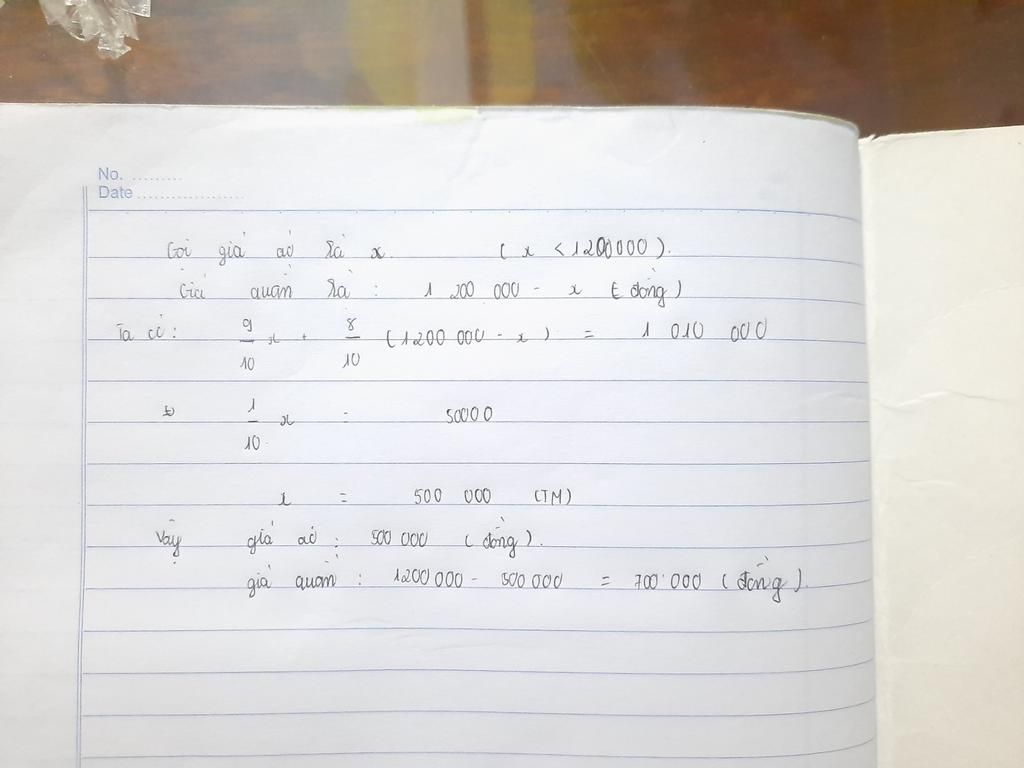 No. .........
Date ...................
Gọi giá áo là x. ( x < 1200000 ).
Giá quần là : 1 200 000 - x ( đồng )
Ta có : 9/10 x + 8/10 (1200 000 - x ) = 1 010 000
⇔ 1/10 x = 50000
x = 500 000 (TM)
Vậy giá áo : 500 000 ( đồng ).
giá quần : 1200 000 - 500 000 = 700 000 ( đồng ).